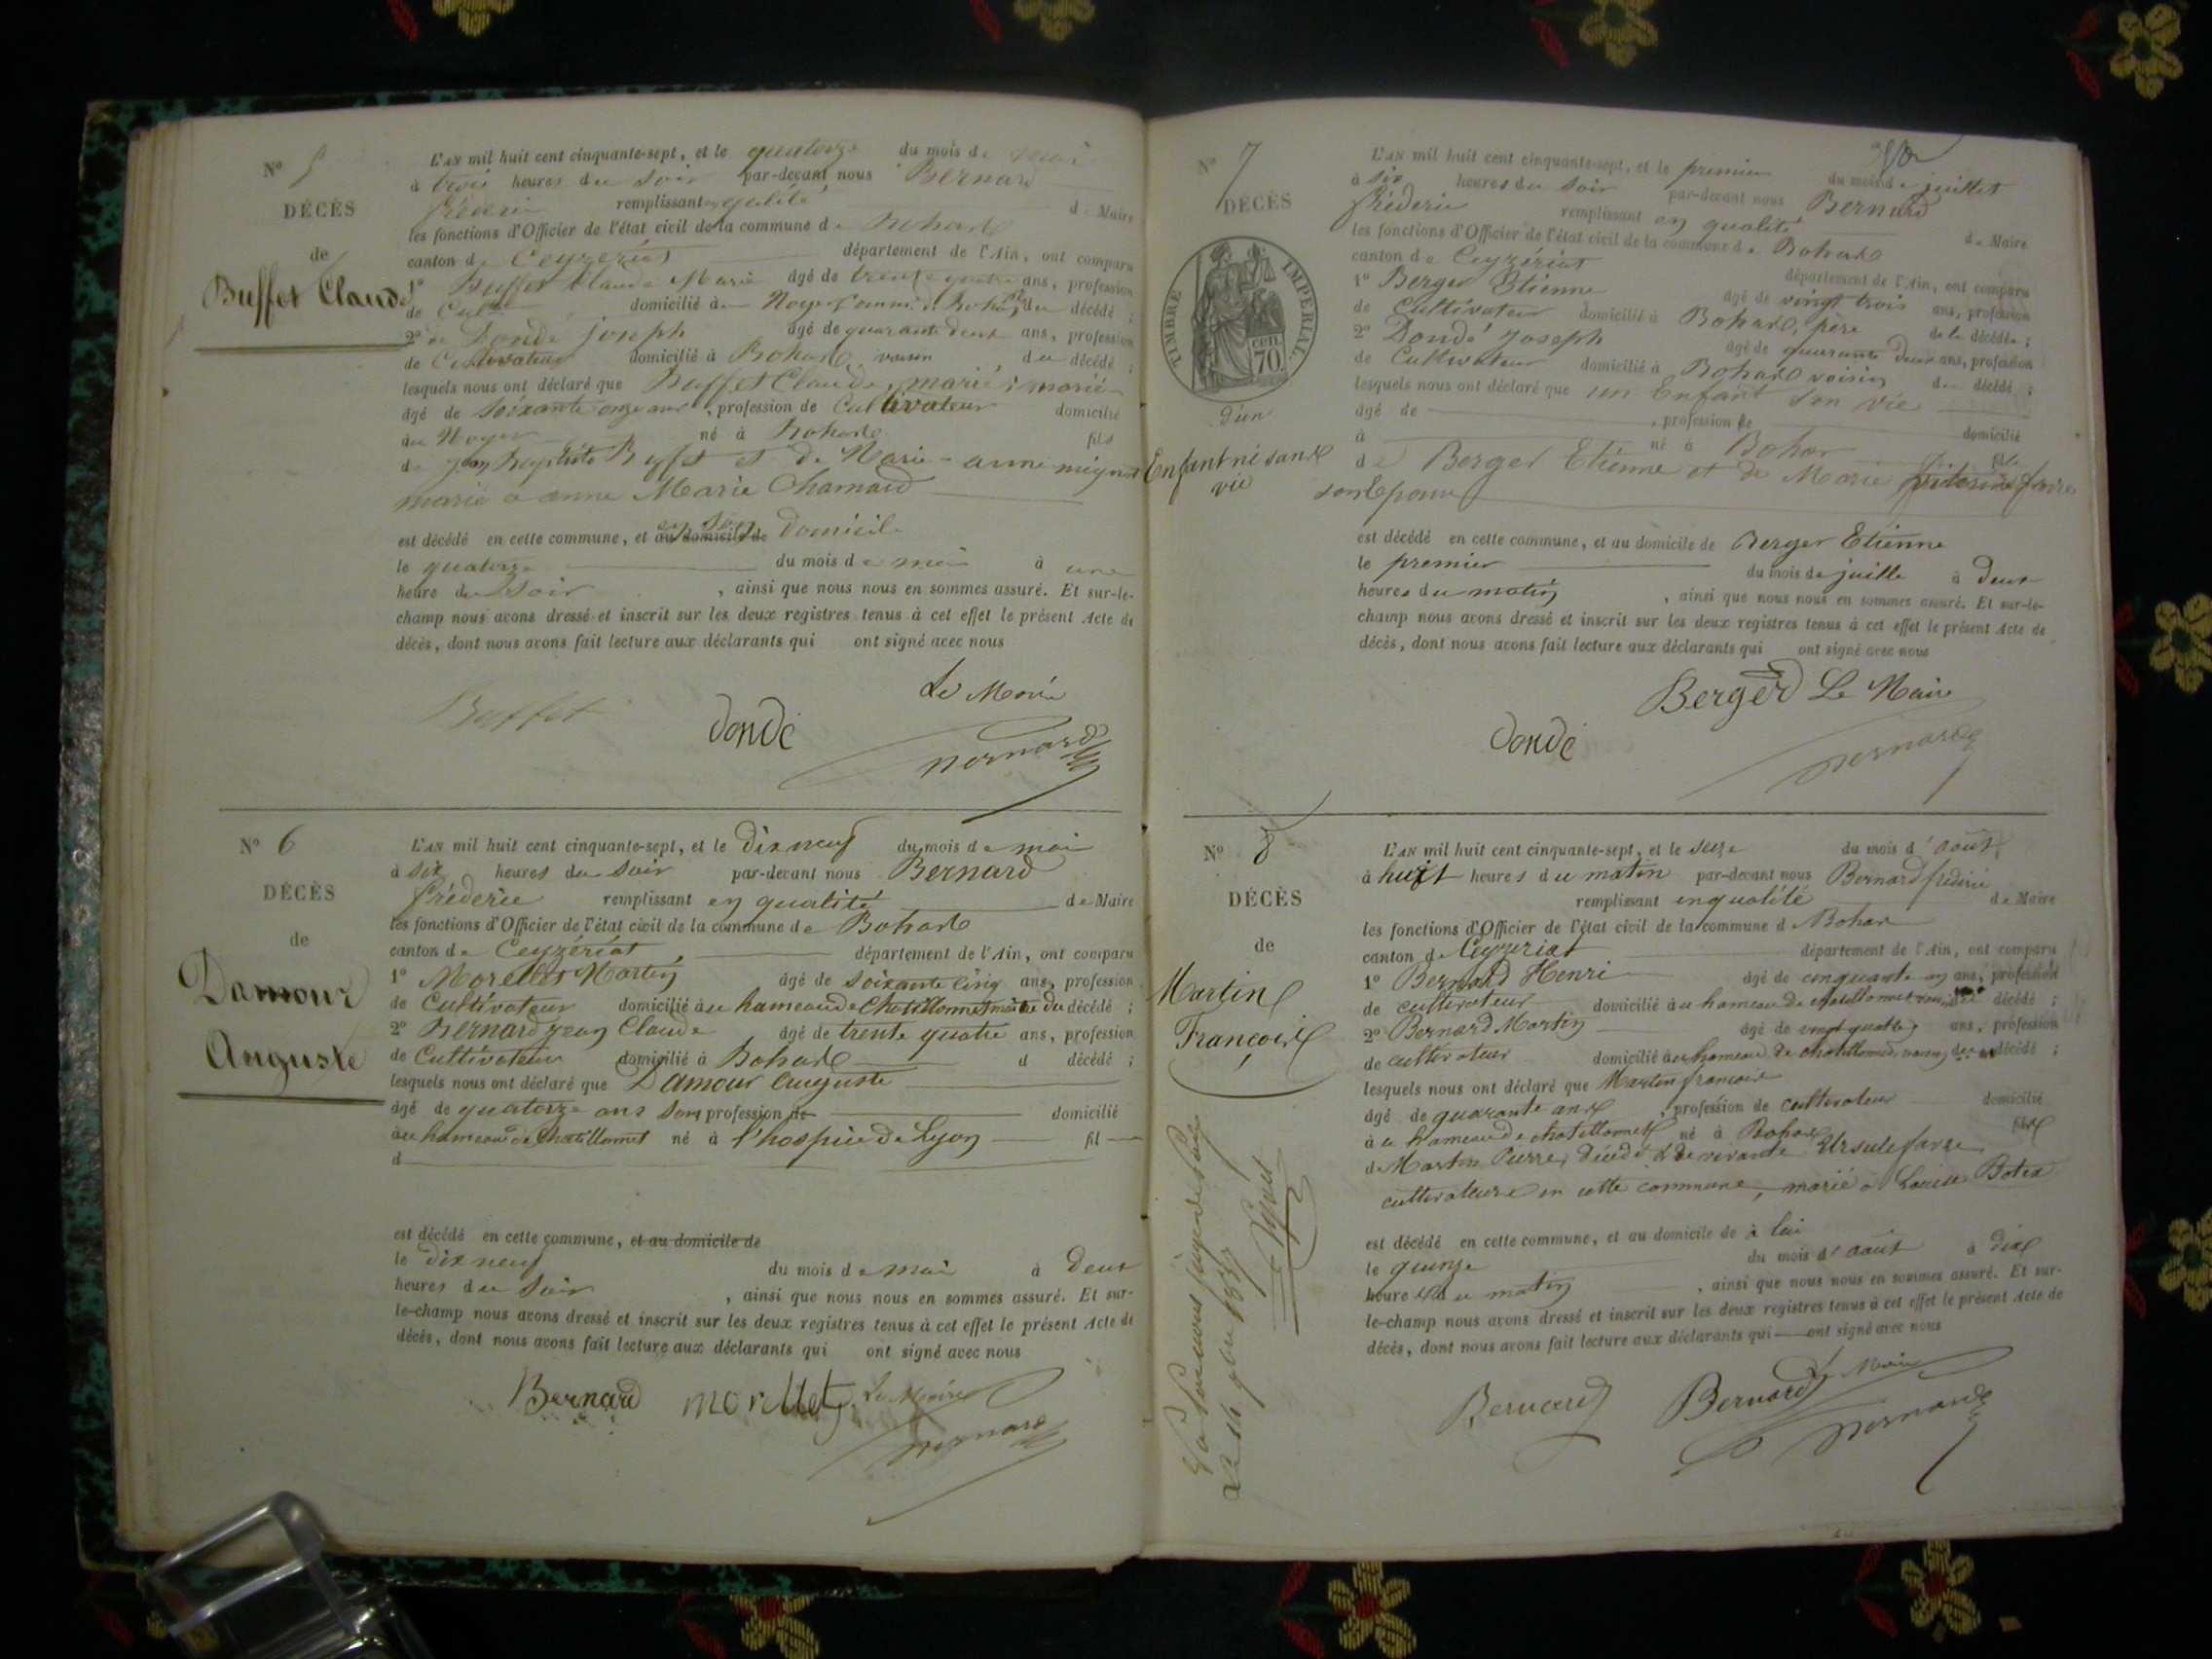 N° 5
DÉCÈS
de
Buffet Claude
L'AN mil huit cent cinquante-sept, et le quatorze du mois de mai
à trois heures du soir par-devant nous Bernard
fréderic remplissant en qualité de Maire
les fonctions d'Officier de l'état civil de la commune de Bohas
canton de Ceyzériat département de l'Ain, ont comparu
1° Buffet Claude Marie âgé de trente quatre ans, profession
de Cult domicilié à Noyer Comm. de Bohas, du décédé ;
2° Dondé joseph âgé de quarante deux ans, profession
de Cultivateur domicilié à Bohas voisin du décédé ;
lesquels nous ont déclaré que Buffet Claude, marié
âgé de soixante onze ans, profession de Cultivateur domicilié
au Noyer né à Bohas fils
de jean Baptiste Buffet et de Marie-anne
marié a anne Marie Chanard
est décédé en cette commune, et au domicile de en son Domicile
le quatorze du mois de mai à une
heure du soir, ainsi que nous nous en sommes assuré. Et sur-le-
champ nous avons dressé et inscrit sur les deux registres tenus à cet effet le présent Acte de
décès, dont nous avons fait lecture aux déclarants qui ont signé avec nous
Le Maire
Buffet donde Bernard
N° 6
DÉCÈS
de
Damour
Auguste
L'AN mil huit cent cinquante-sept, et le Dix neuf du mois de mai
à six heures du soir par-devant nous Bernard
fréderic remplissant en qualité de Maire
les fonctions d'Officier de l'état civil de la commune de Bohas
canton de Ceyzériat département de l'Ain, ont comparu
1° Morellet Martin âgé de soixante cinq ans, profession
de Cultivateur domicilié au hameau de Chatillonnet maitre du décédé ;
2° Bernard jean Claude âgé de trente quatre ans, profession
de Cultivateur domicilié à Bohas d décédé ;
lesquels nous ont déclaré que Damour auguste
âgé de quatorze ans sans profession de domicilié
au hameau de Chatillonnet né à l'hospice de Lyon fil
d
est décédé en cette commune, et au domicile de
le dix neuf du mois de mai à Deux
heures du soir, ainsi que nous nous en sommes assuré. Et sur-
le-champ nous avons dressé et inscrit sur les deux registres tenus à cet effet le présent Acte de
décès, dont nous avons fait lecture aux déclarants qui ont signé avec nous
Bernard morellet Le Maire
Bernard
N° 7
DÉCÈS
TIMBRE IMPÉRIAL
cen. 70
D'un
Enfant né sans
vie
L'AN mil huit cent cinquante-sept, et le premier du mois de juillet
à six heures du soir par-devant nous Bernard
fréderic remplissant en qualité de Maire
les fonctions d'Officier de l'état civil de la commune de Bohas
canton de Ceyzériat département de l'Ain, ont comparu
1° Berger Etienne âgé de vingt trois ans, profession
de Cultivateur domicilié à Bohas, père de la décédée ;
2° Dondé joseph âgé de quarante Deux ans, profession
de Cultivateur domicilié à Bohas voisin d décédé ;
lesquels nous ont déclaré que un Enfant san vie
âgé de , profession de domicilié
à né à Bohas fils
de Berger Etienne et de Marie
son Epouse
est décédé en cette commune, et au domicile de Berger Etienne
le premier du mois de juille à Deux
heures du matin, ainsi que nous nous en sommes assuré. Et sur-le-
champ nous avons dressé et inscrit sur les deux registres tenus à cet effet le présent Acte de
décès, dont nous avons fait lecture aux déclarants qui ont signé avec nous
Berger Le Maire
donde Bernard
N° 8
DÉCÈS
de
Martin
François
L'AN mil huit cent cinquante-sept, et le seize du mois d'août
à huit heures du matin par-devant nous Bernard fréderic
remplissant en qualité de Maire
les fonctions d'Officier de l'état civil de la commune d Bohas
canton de Ceyzeriat département de l'Ain, ont comparu
1° Bernard Henri âgé de cinquante un ans, profession
de cultivateur domicilié au hameau de chatillonnet voisin du décédé ;
2° Bernard Martin âgé de vingt quatre ans, profession
de cultivateur domicilié au hameau de chatillonnet, voisin du décédé ;
lesquels nous ont déclaré que Martin françois
âgé de quarante ans, profession de cultivateur domicilié
au hameau de chatillonnet né à Bohas fils
d Martin Pierre, décédé & de vivante Ursule favre
cultivateurs en cette commune, marié à Louise
est décédé en cette commune, et au domicile de à lui
le quinze du mois d'août à dix
heures du matin, ainsi que nous nous en sommes assuré. Et sur-
le-champ nous avons dressé et inscrit sur les deux registres tenus à cet effet le présent Acte de
décès, dont nous avons fait lecture aux déclarants qui ont signé avec nous
Le Maire
Bernard Bernard Bernard